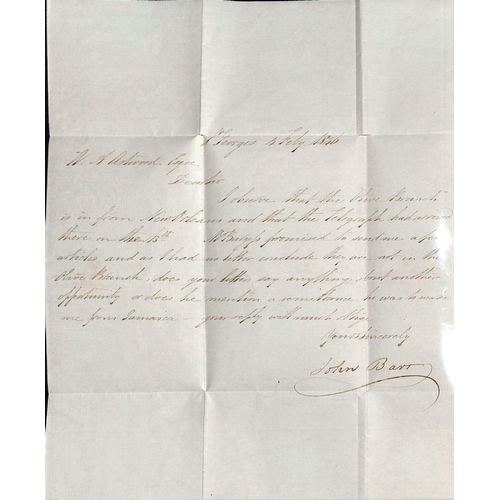 St Georges 4 Feby 1846
W. A. Outwood Esqre
Dear Sir
I observe that the Olive Branch
is in from New Orleans and that the Telegraph had arrived
there on the 13th McBurgess promised to send me a few
articles and as I had no letter conclude they are not in the
Olive Branch, does your letter say anything about another
oppotunity or does he mention a remittance he was to make
me from Jamaica — your reply will much oblige
Yours Sincerely
John Barr